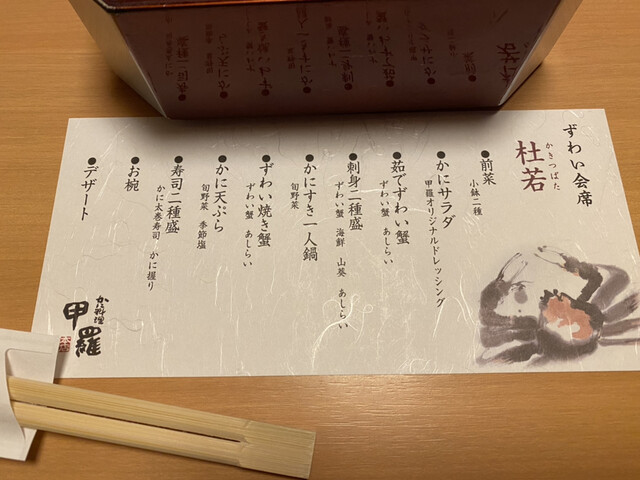 ずわい会席
杜若
かきつばた
●前菜
小鉢二種
●かにサラダ
甲羅オリジナルドレッシング
●茹でずわい蟹
ずわい蟹 あしらい
●刺身二種盛
ずわい蟹 海鮮 山葵 あしらい
●かにすき一人鍋
旬野菜
●ずわい焼き蟹
ずわい蟹 あしらい
●かに天ぷら
旬野菜 季節塩
●寿司二種盛
かに太巻寿司 かに握り
●お椀
●デザート
かに料理
甲羅